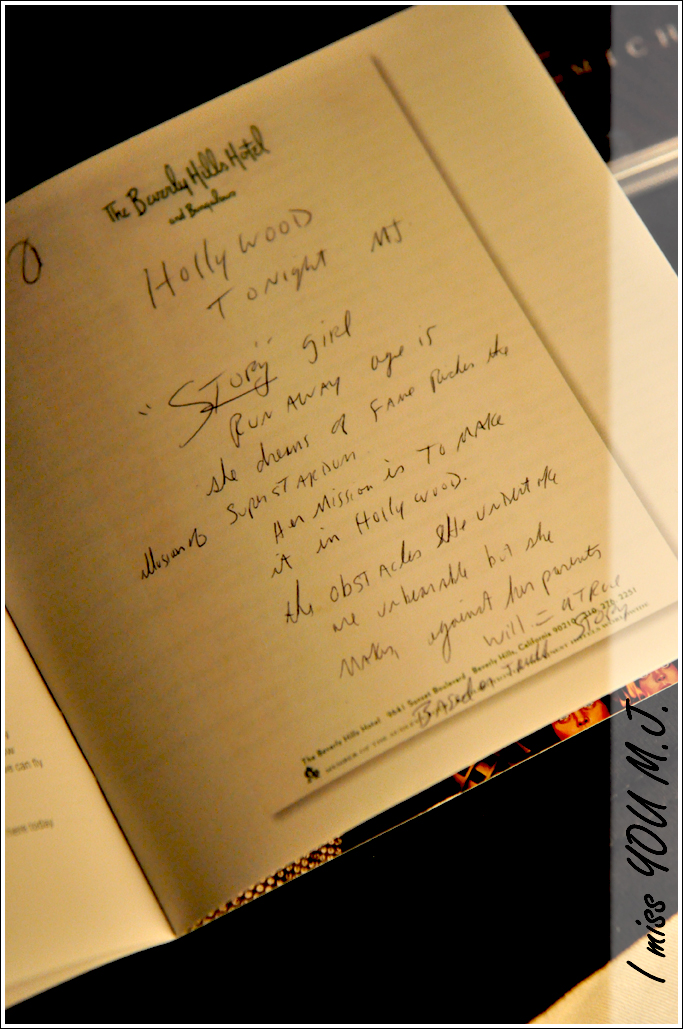 MICH
The Beverly Hills Hotel
and Bungalows
Hollywood
Tonight MJ
"Story" girl
Run away age is
she dreams of Fame pushes the
illusion of Superstardom
Her Mission is To Make
it in Hollywood.
the obstacles she undertake
are unbearable but she
Makes against her parents
will = a True
Story
Based on Truth
The Beverly Hills Hotel 9641 Sunset Boulevard Beverly Hills, California 90210 310 276 2251
MEMBER OF THE
can fly
here today
I miss YOU M.J.